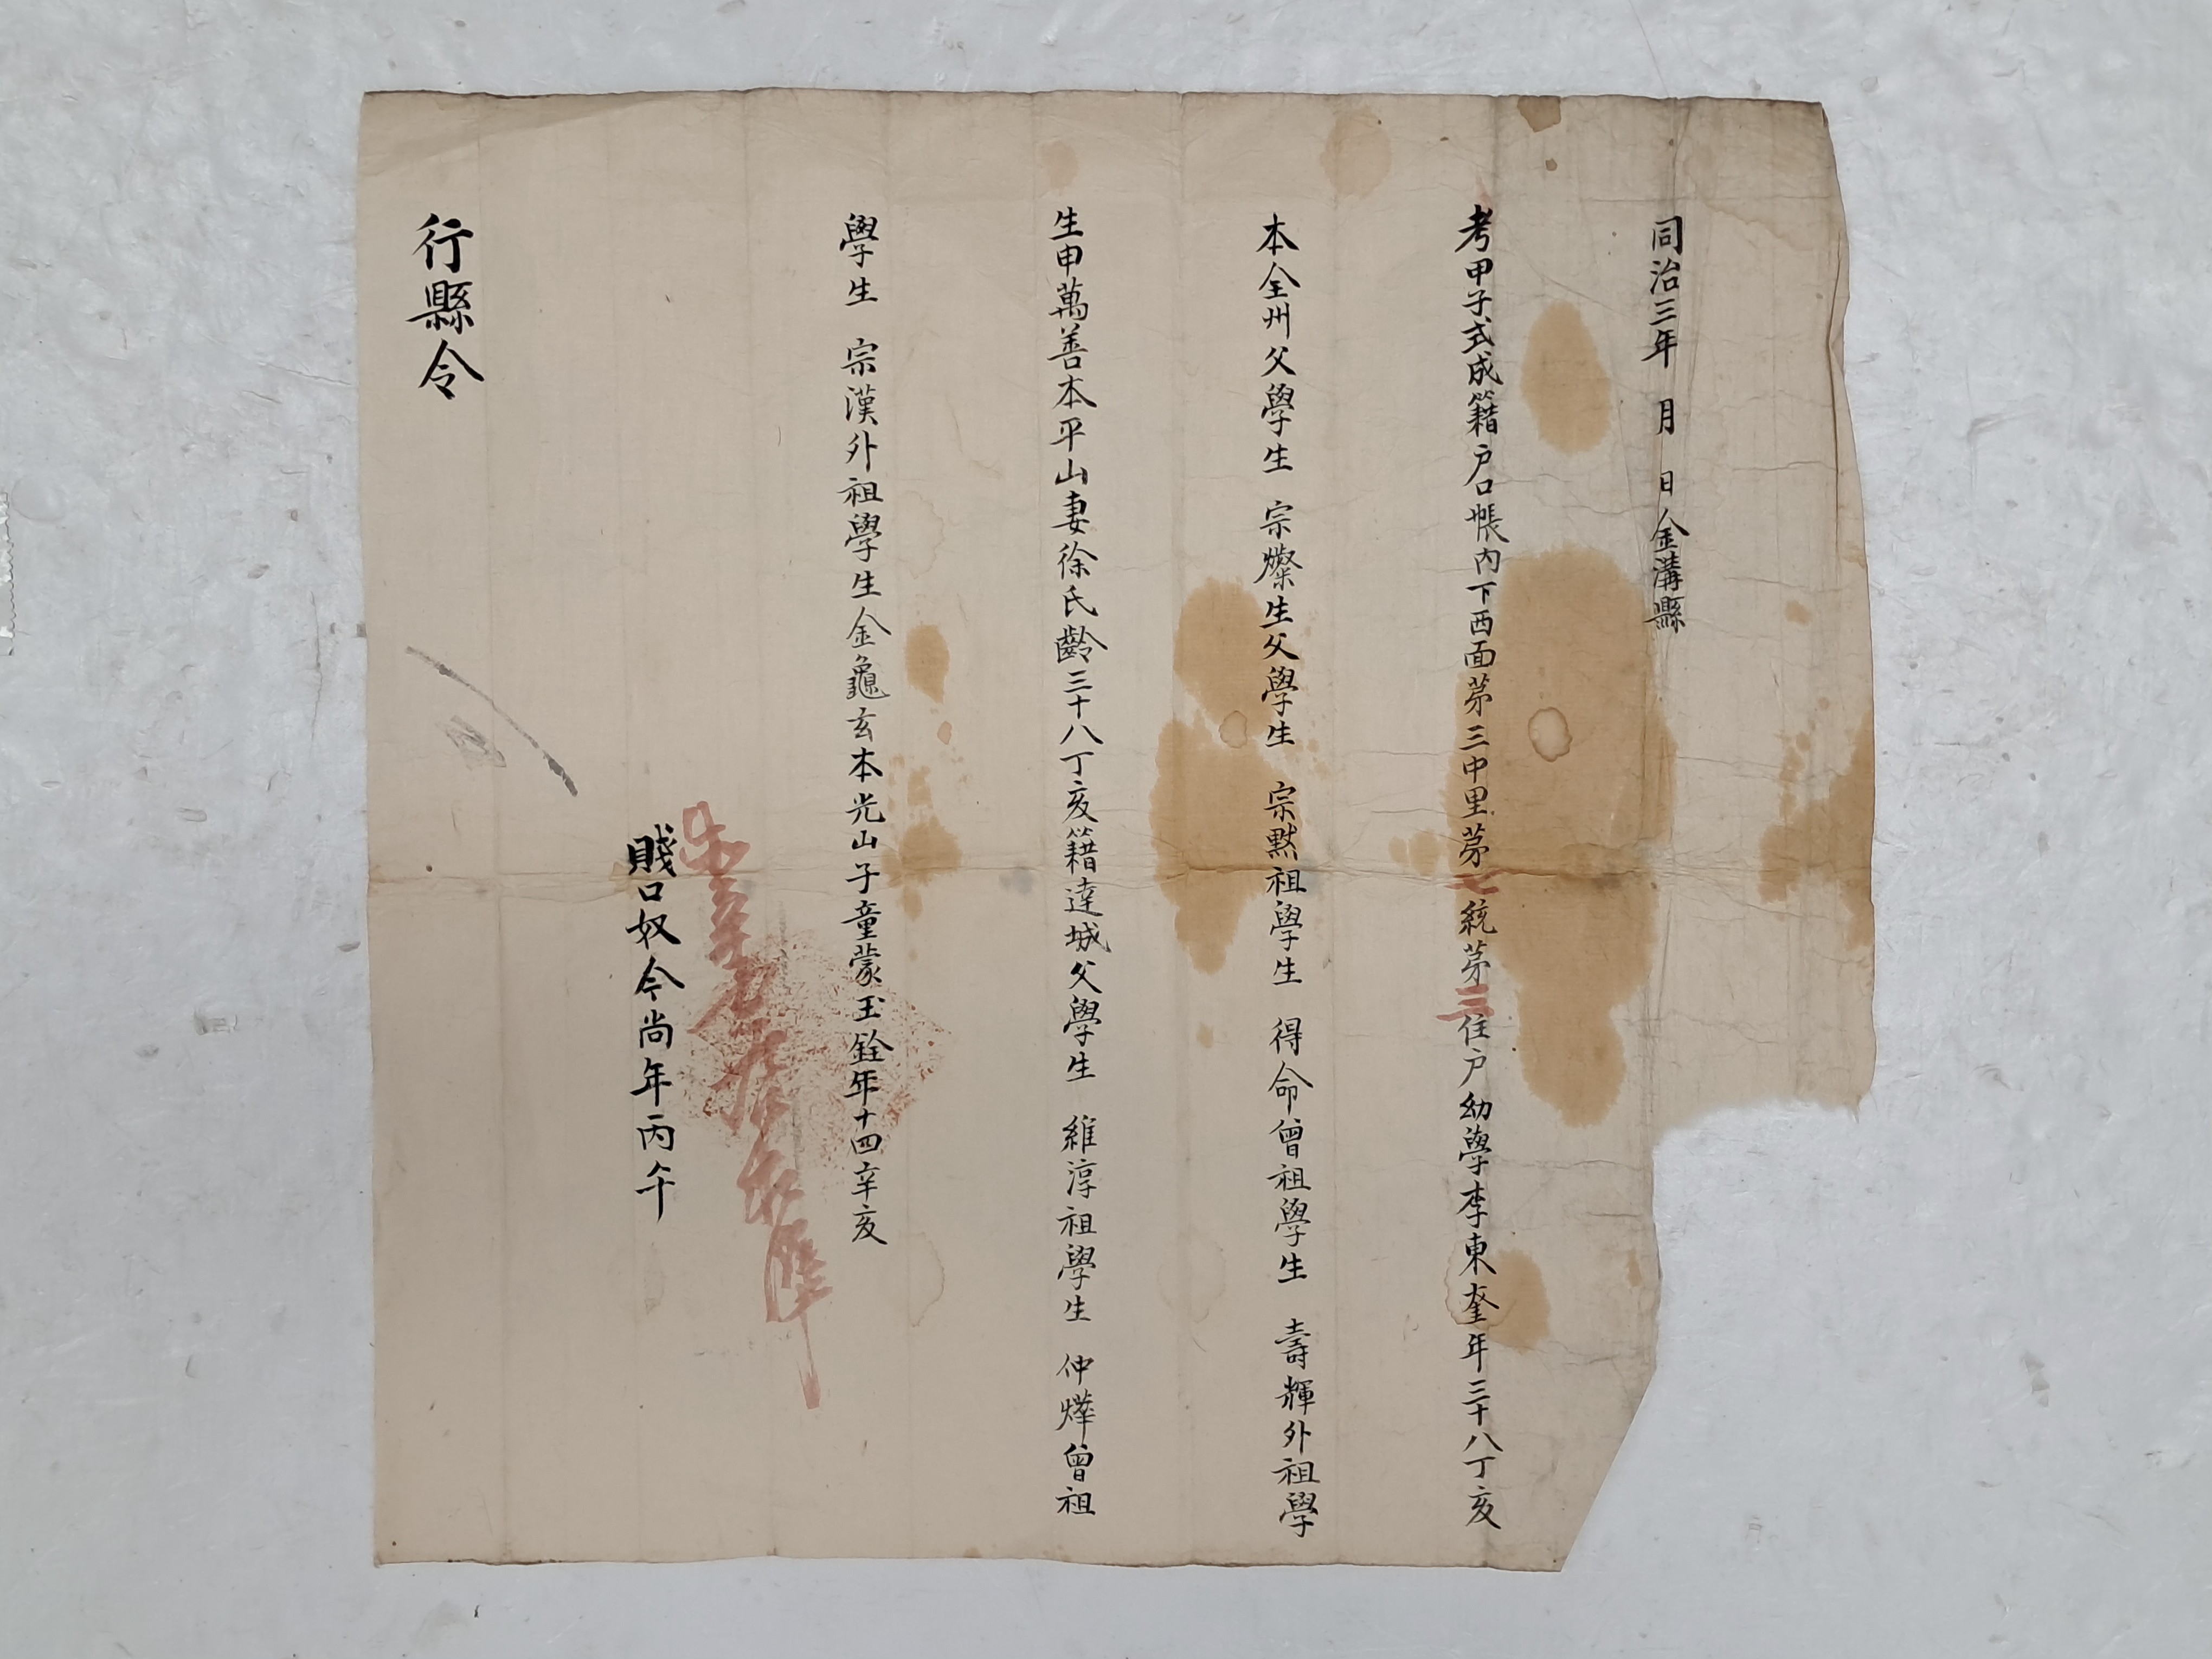 同治三年 月 日金溝縣
考甲子式成籍户口帳內下西面苐三中里苐七統苐三住户幼學李東奎年三十八丁亥
本全州父學生 宗燦生父學生 宗黙祖學生 得命曾祖學生 壽輝外祖學
生申萬善本平山妻徐氏齡三十八丁亥籍達城父學生 維淳祖學生 仲燁曾祖
學生 宗漢外祖學生金龜玄本光山子童蒙玉銓年十四辛亥
賤口奴令尚年丙午
行縣令